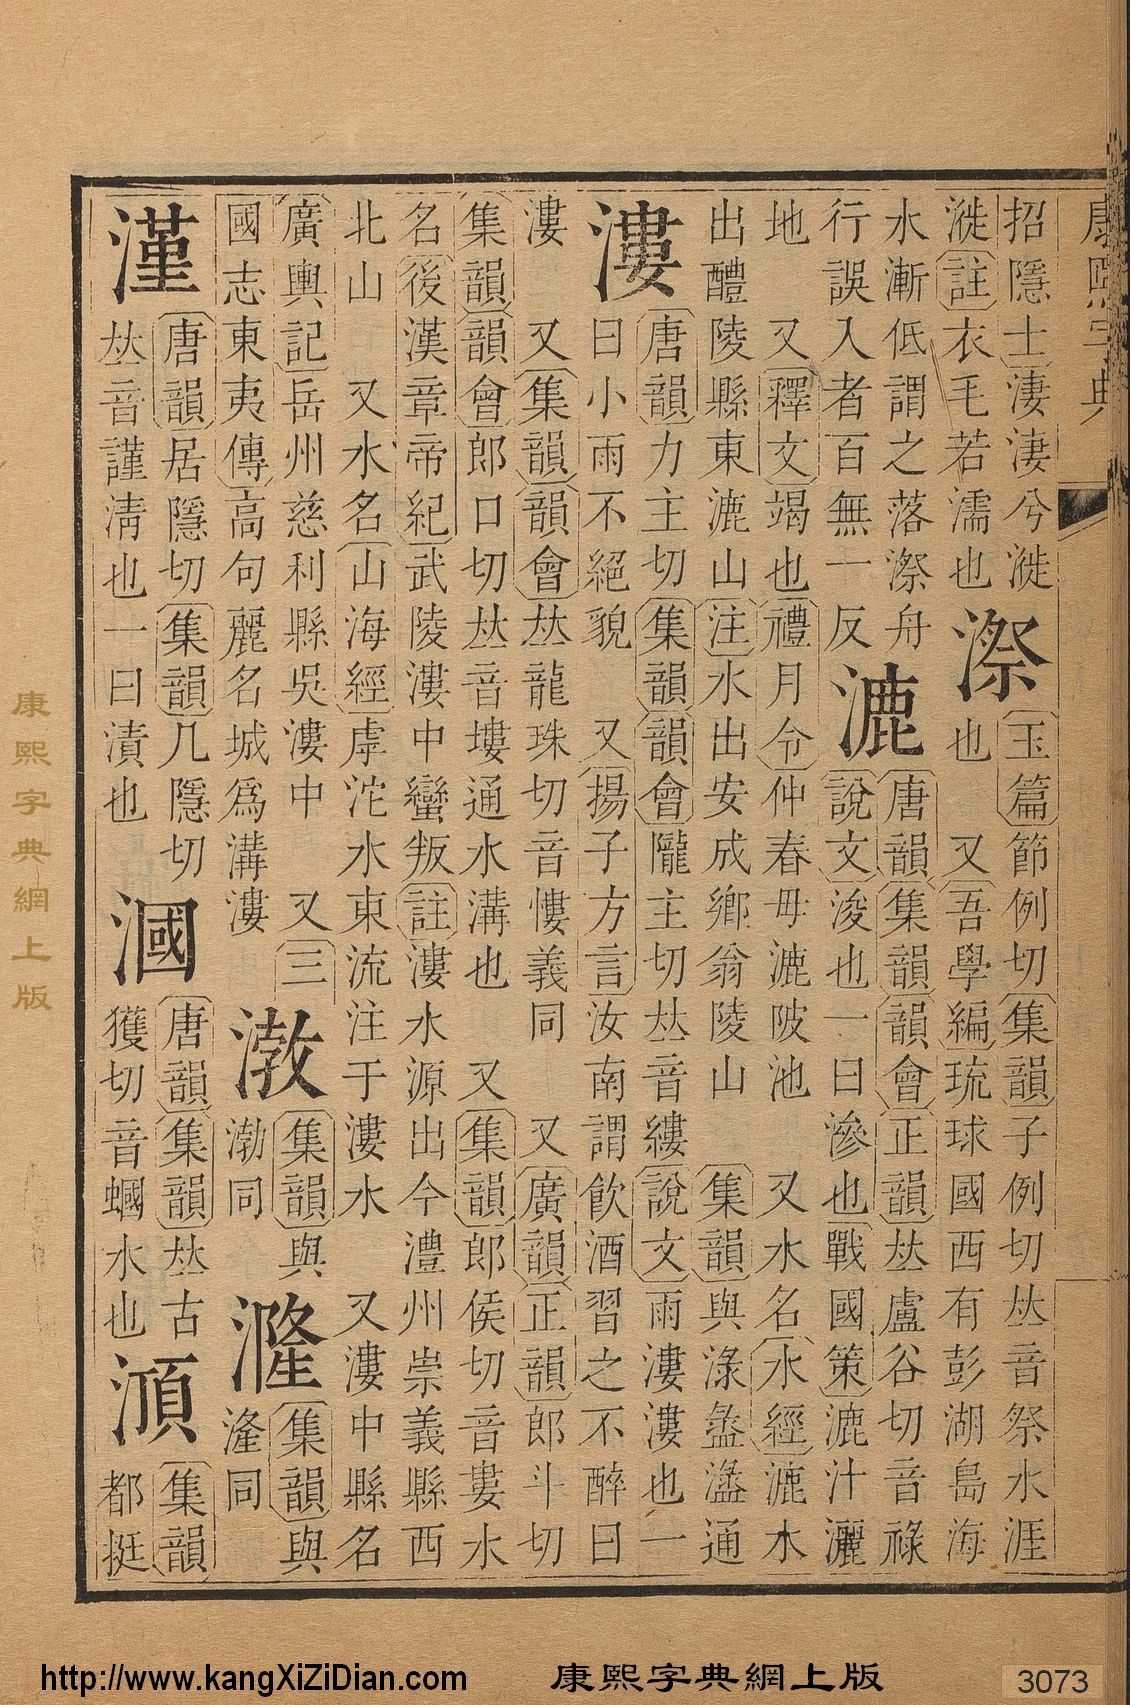 康熙字典
招隱士淒淒兮漇
漇註衣毛若濡也
漈
玉篇節例切集韻子例切𠀤音祭水涯
也 又吾學編琉球國西有彭湖島海
水漸低謂之落漈舟
行誤入者百無一反
漉
唐韻集韻韻會正韻𠀤盧谷切音祿
說文浚也一曰滲也戰國策漉汁灑
地 又釋文竭也禮月令仲春毋漉陂池 又水名水經漉水
出醴陵縣東漉山注水出安成鄉翁陵山 集韻與淥盝𥂖通
漊
唐韻力主切集韻韻會隴主切𠀤音縷說文雨漊漊也一
曰小雨不絕貌 又揚子方言汝南謂飮酒習之不醉曰
漊 又集韻韻會𠀤龍珠切音慺義同 又廣韻正韻郎斗切
集韻韻會郎口切𠀤音塿通水溝也 又集韻郎侯切音婁水
名後漢章帝紀武陵漊中蠻叛註漊水源出今澧州崇義縣西
北山 又水名山海經虖沱水東流注于漊水 又漊中縣名
廣輿記岳州慈利縣吳漊中 又三
國志東夷傳高句麗名城爲溝漊
集韻與
渤同
漋
集韻與
湰同
漌
唐韻居隱切集韻几隱切
𠀤音謹淸也一曰漬也
漍
唐韻集韻𠀤古
獲切音蟈水也
集韻
都挺
康熙字典網上版
http://www.kangXiZiDian.com 康熙字典網上版 3073